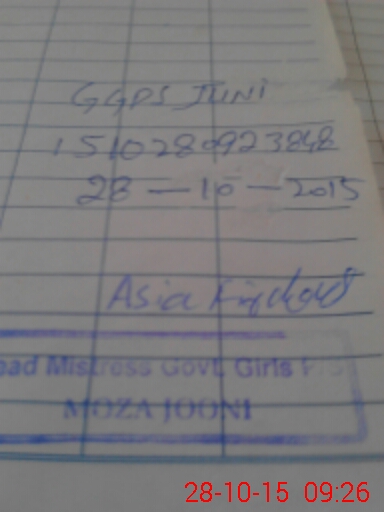 GGPS JUNI
1510280923848
28-10-2015
Asia
ead Mistress Govt. Girls P/S
MOZA JOONI
28-10-15 09:26